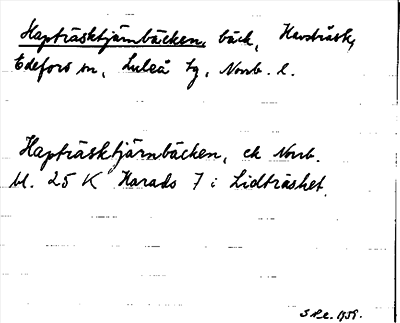 Hapträsktjärnbäcken, bäck, Havsträsk,
Edefors sn, Luleå tg, Norrb. l.
Hapträsktjärnbäcken, ek Norrb.
bl. 25 K Harads 7 i Lidträsket.
1959.